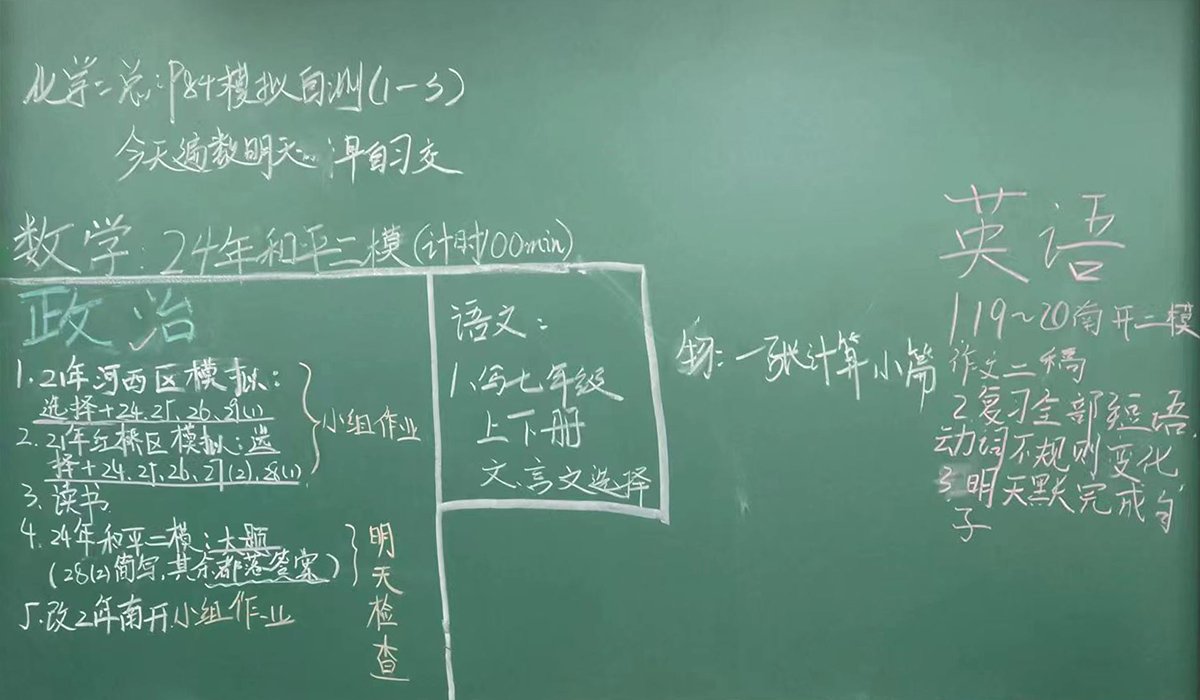 化学:二总:P84模拟自测(1-5)
今天遍数明天 早自习交
数学:24年和平二模(计时100min)
政治
1.21年河西区模拟:
选择+24.25.26.29(1)
2.21年红桥区模拟:选
择+24.25.26.27(2).28(1)
小组作业
3.读书
4.24年和平二模:大题
(28(2)简写,其余都落答案)
明天检查
5.改2年南开小组作业
语文:
1.写七年级
上下册
文言文选择
物:一张计算小篇
英语
1 19~20南开二模
作文二稿
2复习全部短语,
动词不规则变化
3.明天默完成句
子